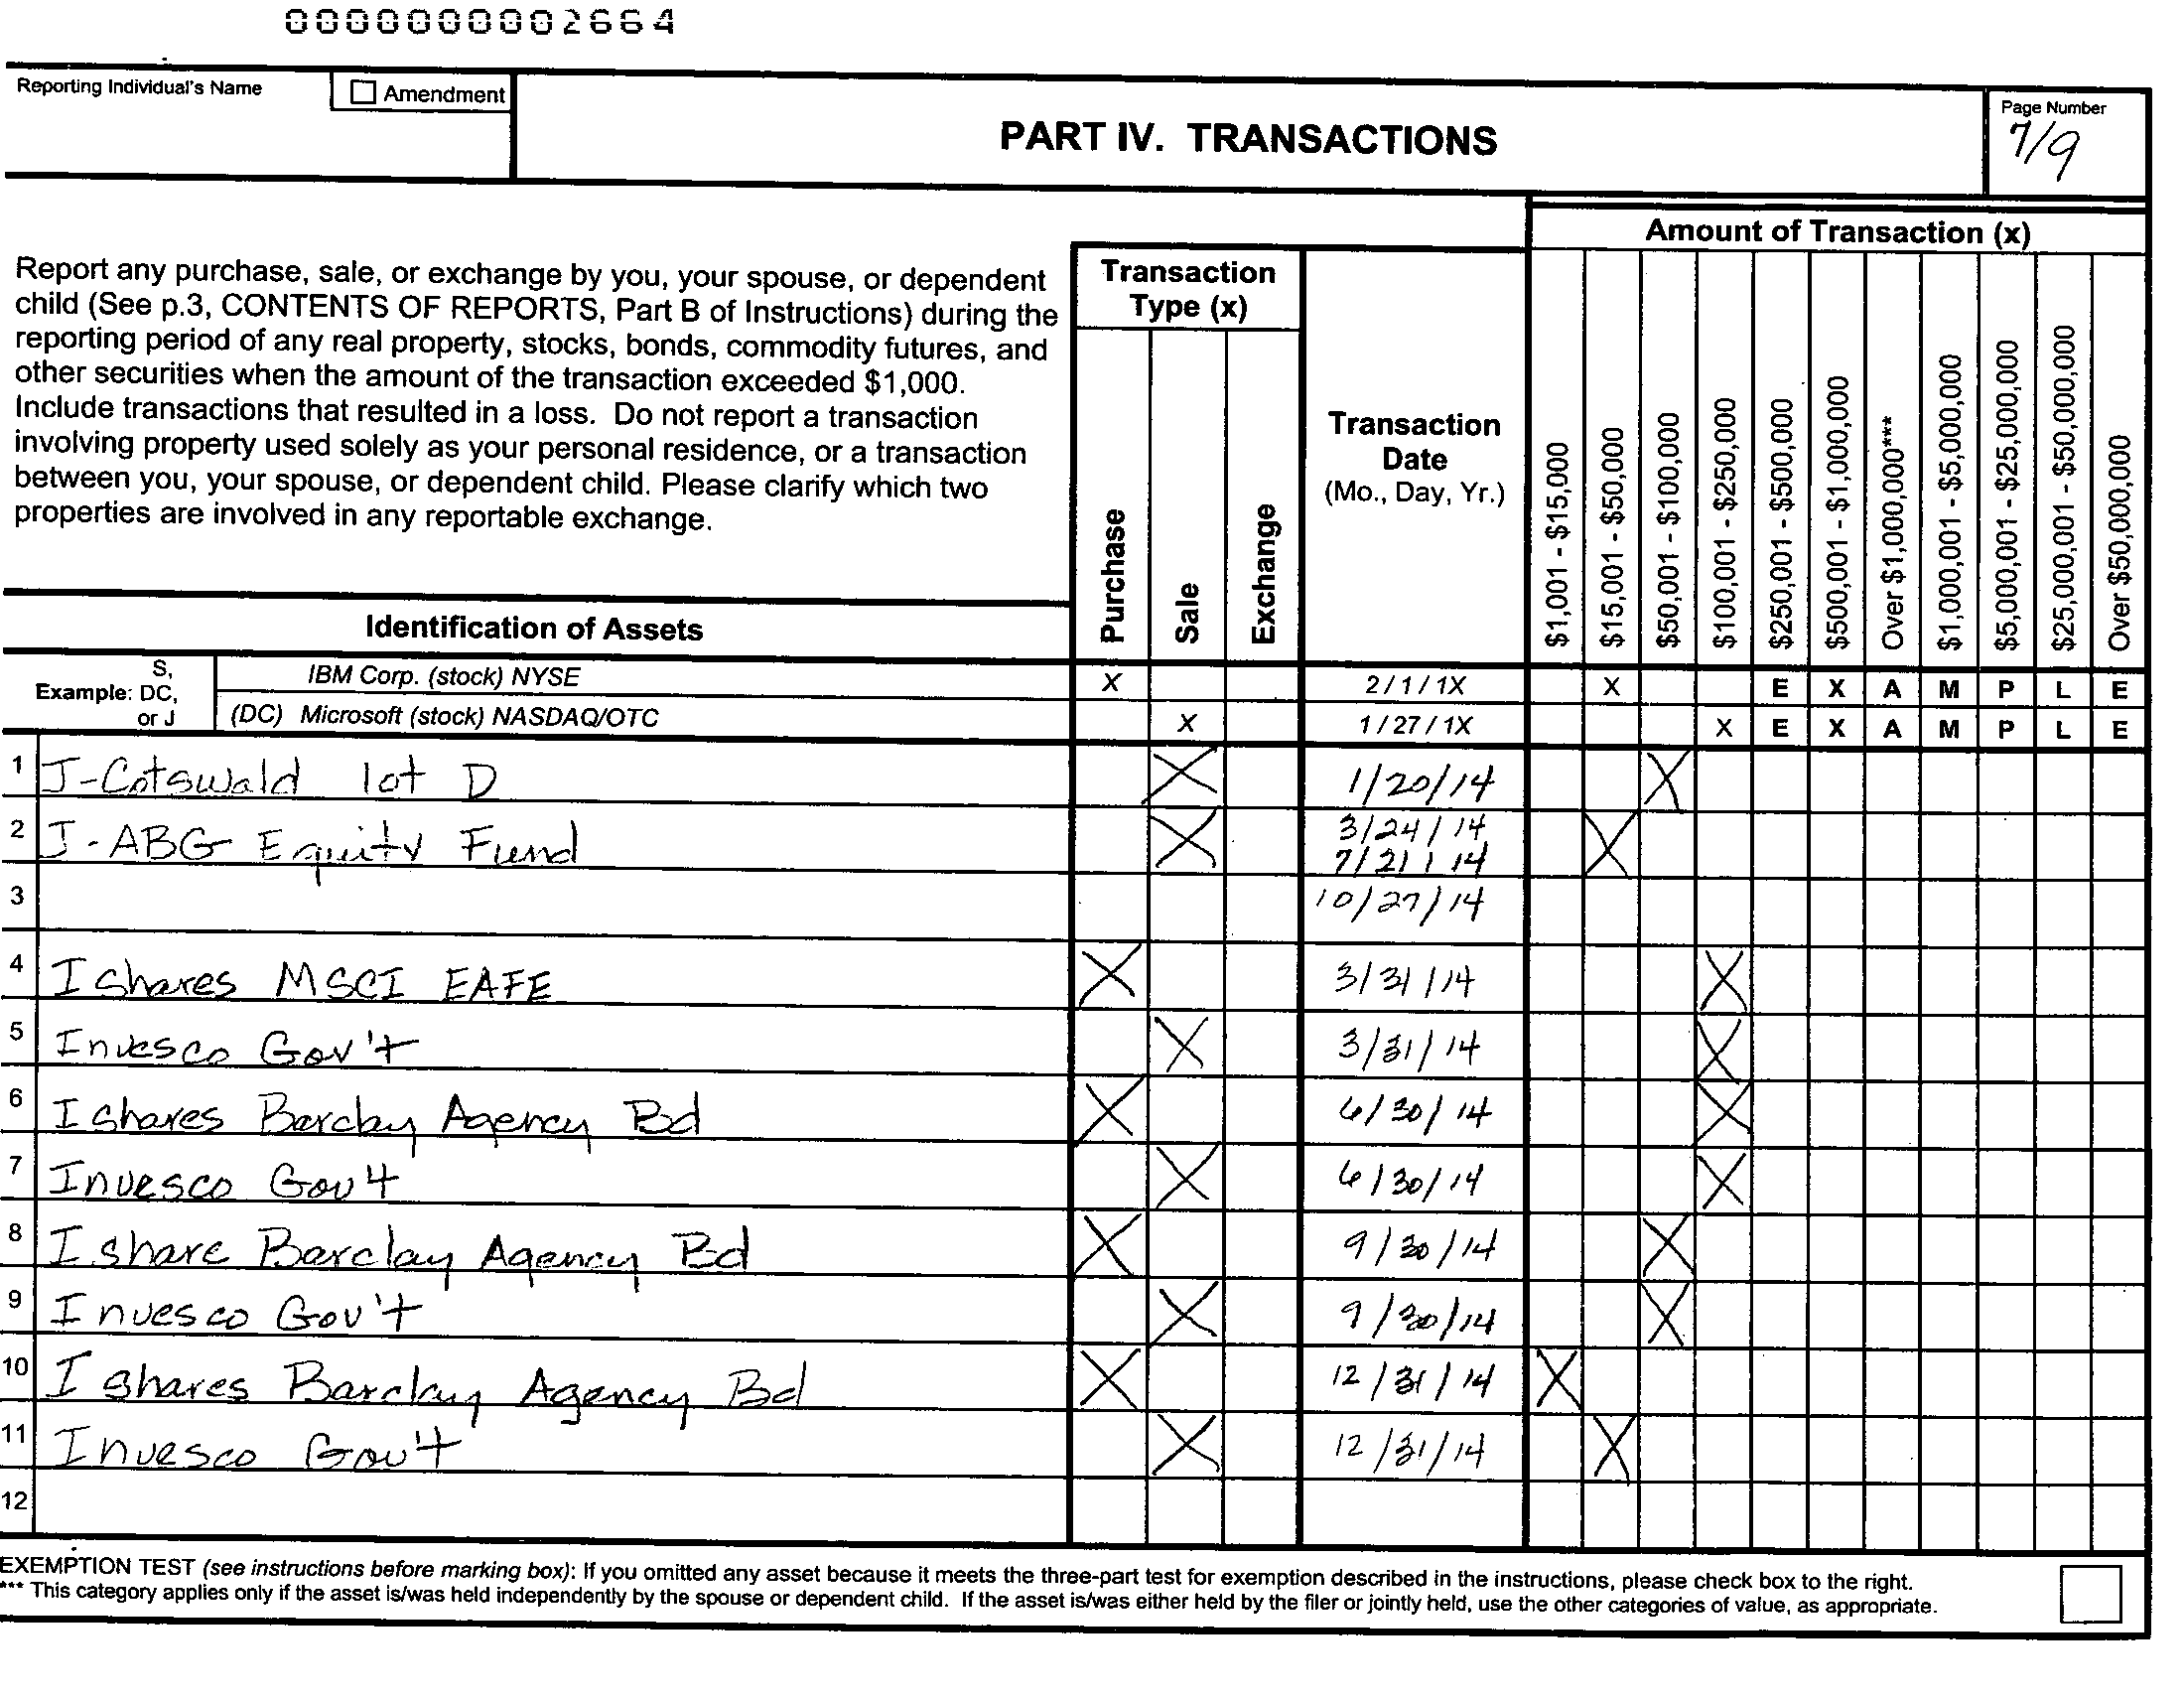 0000000002664
Reporting Individual's Name
Amendment
PART IV. TRANSACTIONS
Page Number
7/9
Report any purchase, sale, or exchange by you, your spouse, or dependent
child (See p.3, CONTENTS OF REPORTS, Part B of Instructions) during the
reporting period of any real property, stocks, bonds, commodity futures, and
other securities when the amount of the transaction exceeded $1,000.
Include transactions that resulted in a loss. Do not report a transaction
involving property used solely as your personal residence, or a transaction
between you, your spouse, or dependent child. Please clarify which two
properties are involved in any reportable exchange.
Transaction
Type (x)
Purchase
Sale
Exchange
Transaction
Date
(Mo., Day, Yr.)
Amount of Transaction (x)
$1,001 - $15,000
$15,001 - $50,000
$50,001 - $100,000
$100,001 - $250,000
$250,001 - $500,000
$500,001 - $1,000,000
Over $1,000,000***
$1,000,001 - $5,000,000
$5,000,001 - $25,000,000
$25,000,001 - $50,000,000
Over $50,000,000
Identification of Assets
Example: S, DC, or J
IBM Corp. (stock) NYSE X 2/1/1X X E X A M P L E
(DC) Microsoft (stock) NASDAQ/OTC X 1/27/1X X E X A M P L E
1 J-Cotswald lot D X 1/20/14 X
2 J-ABG Equity Fund X 3/24/14 X
7/21/14
3 10/27/14
4 I shares MSCI EAFE X 3/31/14 X
5 Invesco Gov't X 3/31/14 X
6 I shares Barclay Agency Bd X 6/30/14 X
7 Invesco Gov't X 6/30/14 X
8 I share Barclay Agency Bd X 9/30/14 X
9 Invesco Gov't X 9/30/14 X
10 I shares Barclay Agency Bd X 12/31/14 X
11 Invesco Gov't X 12/31/14 X
12
EXEMPTION TEST (see instructions before marking box): If you omitted any asset because it meets the three-part test for exemption described in the instructions, please check box to the right.
*** This category applies only if the asset is/was held independently by the spouse or dependent child. If the asset is/was either held by the filer or jointly held, use the other categories of value, as appropriate.